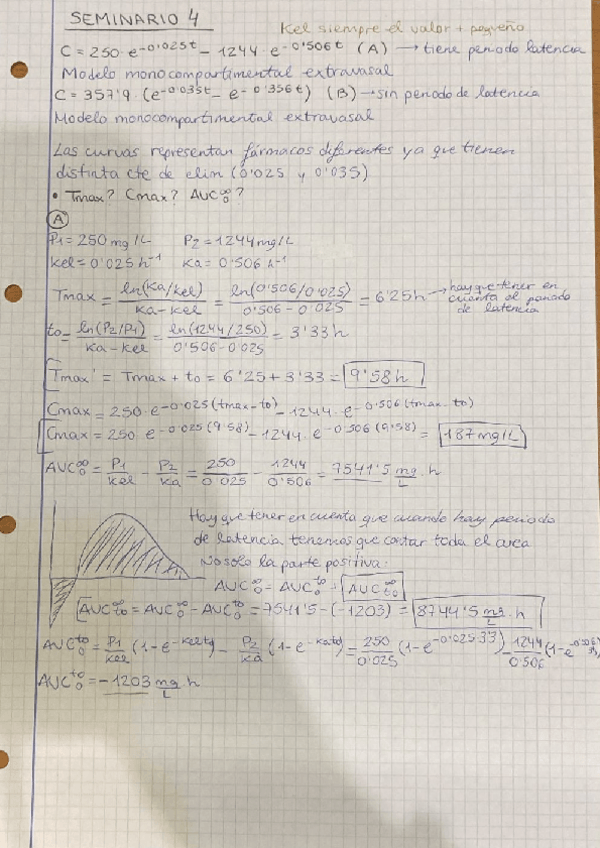 SEMINARIO 4
Kel siempre el valor + pequeño
C = 250 · e^-0'025t - 1244 · e^-0'506t (A) → tiene periodo latencia
Modelo monocompartimental extravasal
C = 357'9 · (e^-0'035t - e^-0'356t) (B) → sin periodo de latencia
Modelo monocompartimental extravasal
Las curvas representan fármacos diferentes ya que tienen
distinta cte de elim (0'025 y 0'035)
• Tmax? Cmax? AUC₀^∞?
A
P1 = 250 mg/L P2 = 1244 mg/L
Kel = 0'025 h⁻¹ Ka = 0'506 h⁻¹
Tmax = ln(Ka/Kel) / Ka - Kel = ln(0'506/0'025) / 0'506 - 0'025 = 6'25h → hay que tener en cuenta el periodo de latencia
to = ln(P2/P1) / Ka - Kel = ln(1244/250) / 0'506 - 0'025 = 3'33 h
Tmax' = Tmax + to = 6'25 + 3'33 = 9'58 h
Cmax = 250 · e^-0'025(tmax-to) - 1244 · e^-0'506(tmax-to)
Cmax = 250 · e^-0'025(9'58) - 1244 · e^-0'506(9'58) = 187 mg/L
AUC₀^∞ = P1/Kel - P2/Ka = 250/0'025 - 1244/0'506 = 7541'5 mg/L · h
Hay que tener en cuenta que cuando hay periodo
de latencia, tenemos que contar toda el area
No solo la parte positiva:
AUC₀^∞ - AUC₀^to = AUC_to^∞
AUC_to^∞ = AUC₀^∞ - AUC₀^to = 7541'5 - (-1203) = 8744'5 mg/L · h
AUC₀^to = P1/Kel (1 - e^-kel·to) - P2/Ka (1 - e^-ka·to) = 250/0'025 (1 - e^-0'025·3'3) - 1244/0'506 (1 - e^-0'506·
AUC₀^to = -1203 mg/L · h